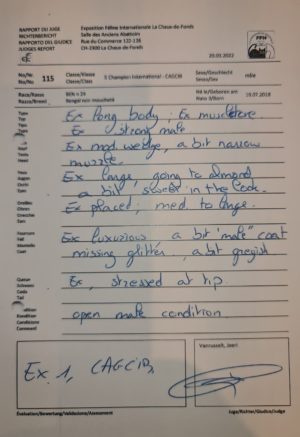 RAPPORT DU JUGE
RICHTERBERICHT
RAPPORTO DEL GIUDICE
JUDGES REPORT
Exposition Féline Internationale La Chaux-de-Fonds
Salle des Anciens Abattoirs
Rue du Commerce 122-126
CH-2300 La Chaux-de-Fonds
FFH
20.03.2022
No/Nr
No/Nu
115
Classe/Klasse
Classe/Class
5 Champion International - CAGCIB
Sexe/Geschlecht
Sesso/Sex
mâle
Race/Rasse
Razza/Breed
BEN n 24
Bengal noir moucheté
Né le/Geboren am
Nato il/Born
16.07.2018
Type
Typ
Tipo
Type
Ex long body, Ex musculature.
Ex strong male
Tête
Kopf
Testa
Head
Ex med. wedge, a bit narrow
muzzle.
Yeux
Augen
Occhi
Eyes
Ex large, going to almond
a bit sweet in the look.
Oreilles
Ohren
Orecchie
Ears
Ex placed, med. to large.
Fourrure
Fell
Mantello
Coat
Ex luxurious a bit "male" coat
missing glitter, a bit greyish
Queue
Schwanz
Coda
Tail
Ex, stressed at tip.
Condition
Kondition
Condizione
Condition
open male condition.
Comment
Ex 1, CAGCIB,
Vanrusselt, Jaeri
Évaluation/Bewertung/Validazione/Assessment
Juge/Richter/Giudice/Judge